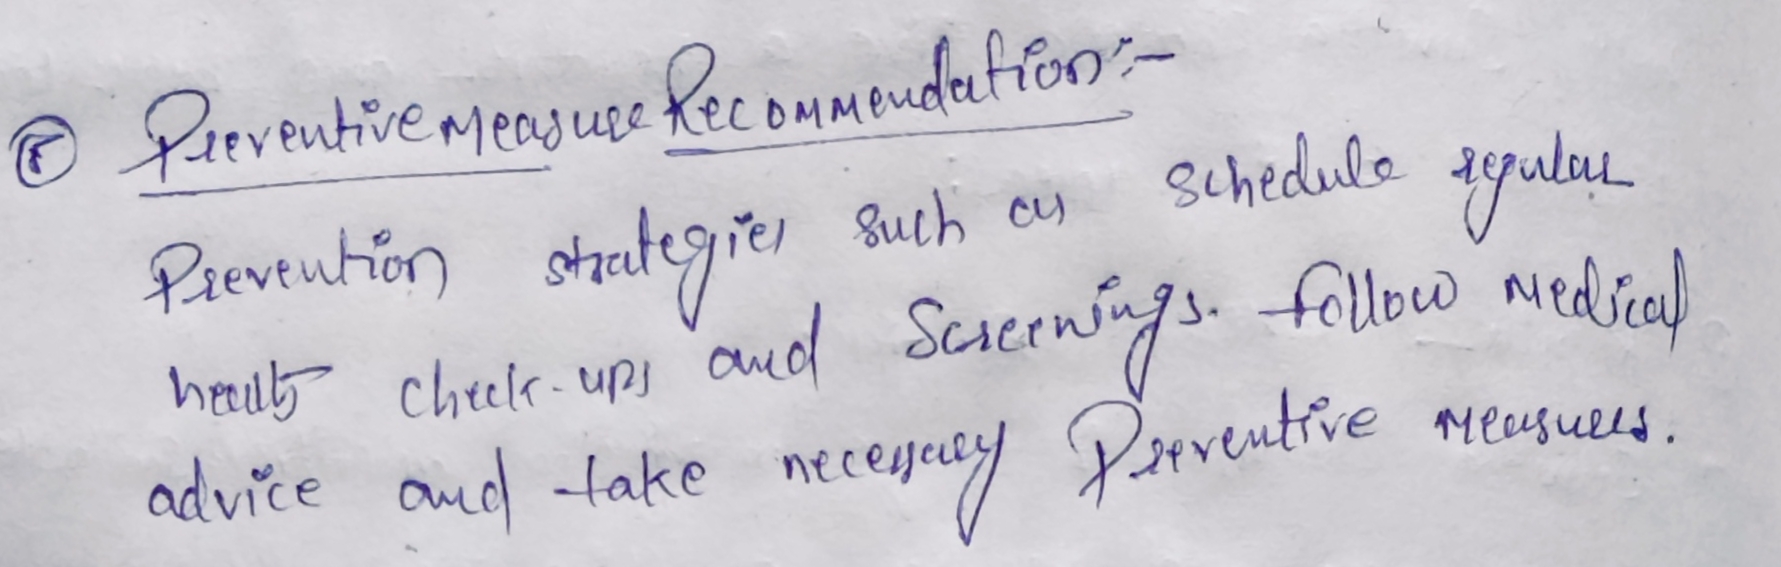 Preventive Measure Recommendation:-
Prevention strategies such as schedule regular
health check-ups and Screenings. follow Medical
advice and take necessary Preventive Measures.